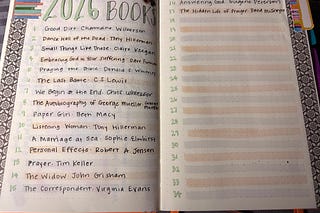 2026 BOOKS
1 Good Dirt: Charmaine Wilkerson
2 Dance Hall of the Dead: Tony Hillerman
3 Small Things Like These: Claire Keegan
4 Embracing God in Our Suffering: Dave Furman
5 Praying the Bible: Donald S. Whitney
6 The Last Battle: C.S. Lewis
7 We Begin at the End: Chris Whitaker
8 The Autobiography of George Mueller
9 Paper Girl: Beth Macy
10 Listening Woman: Tony Hillerman
11 A Marriage at Sea: Sophie Elmhirst
12 Personal Effects: Robert A. Jensen
13 Prayer: Tim Keller
14 The Widow: John Grisham
15 The Correspondent: Virginia Evans
Answering God: Eugene Peterson
The Hidden Life of Prayer:
19
20
21
22
23
24
25
26
27
28
29
30
31
32
33
34